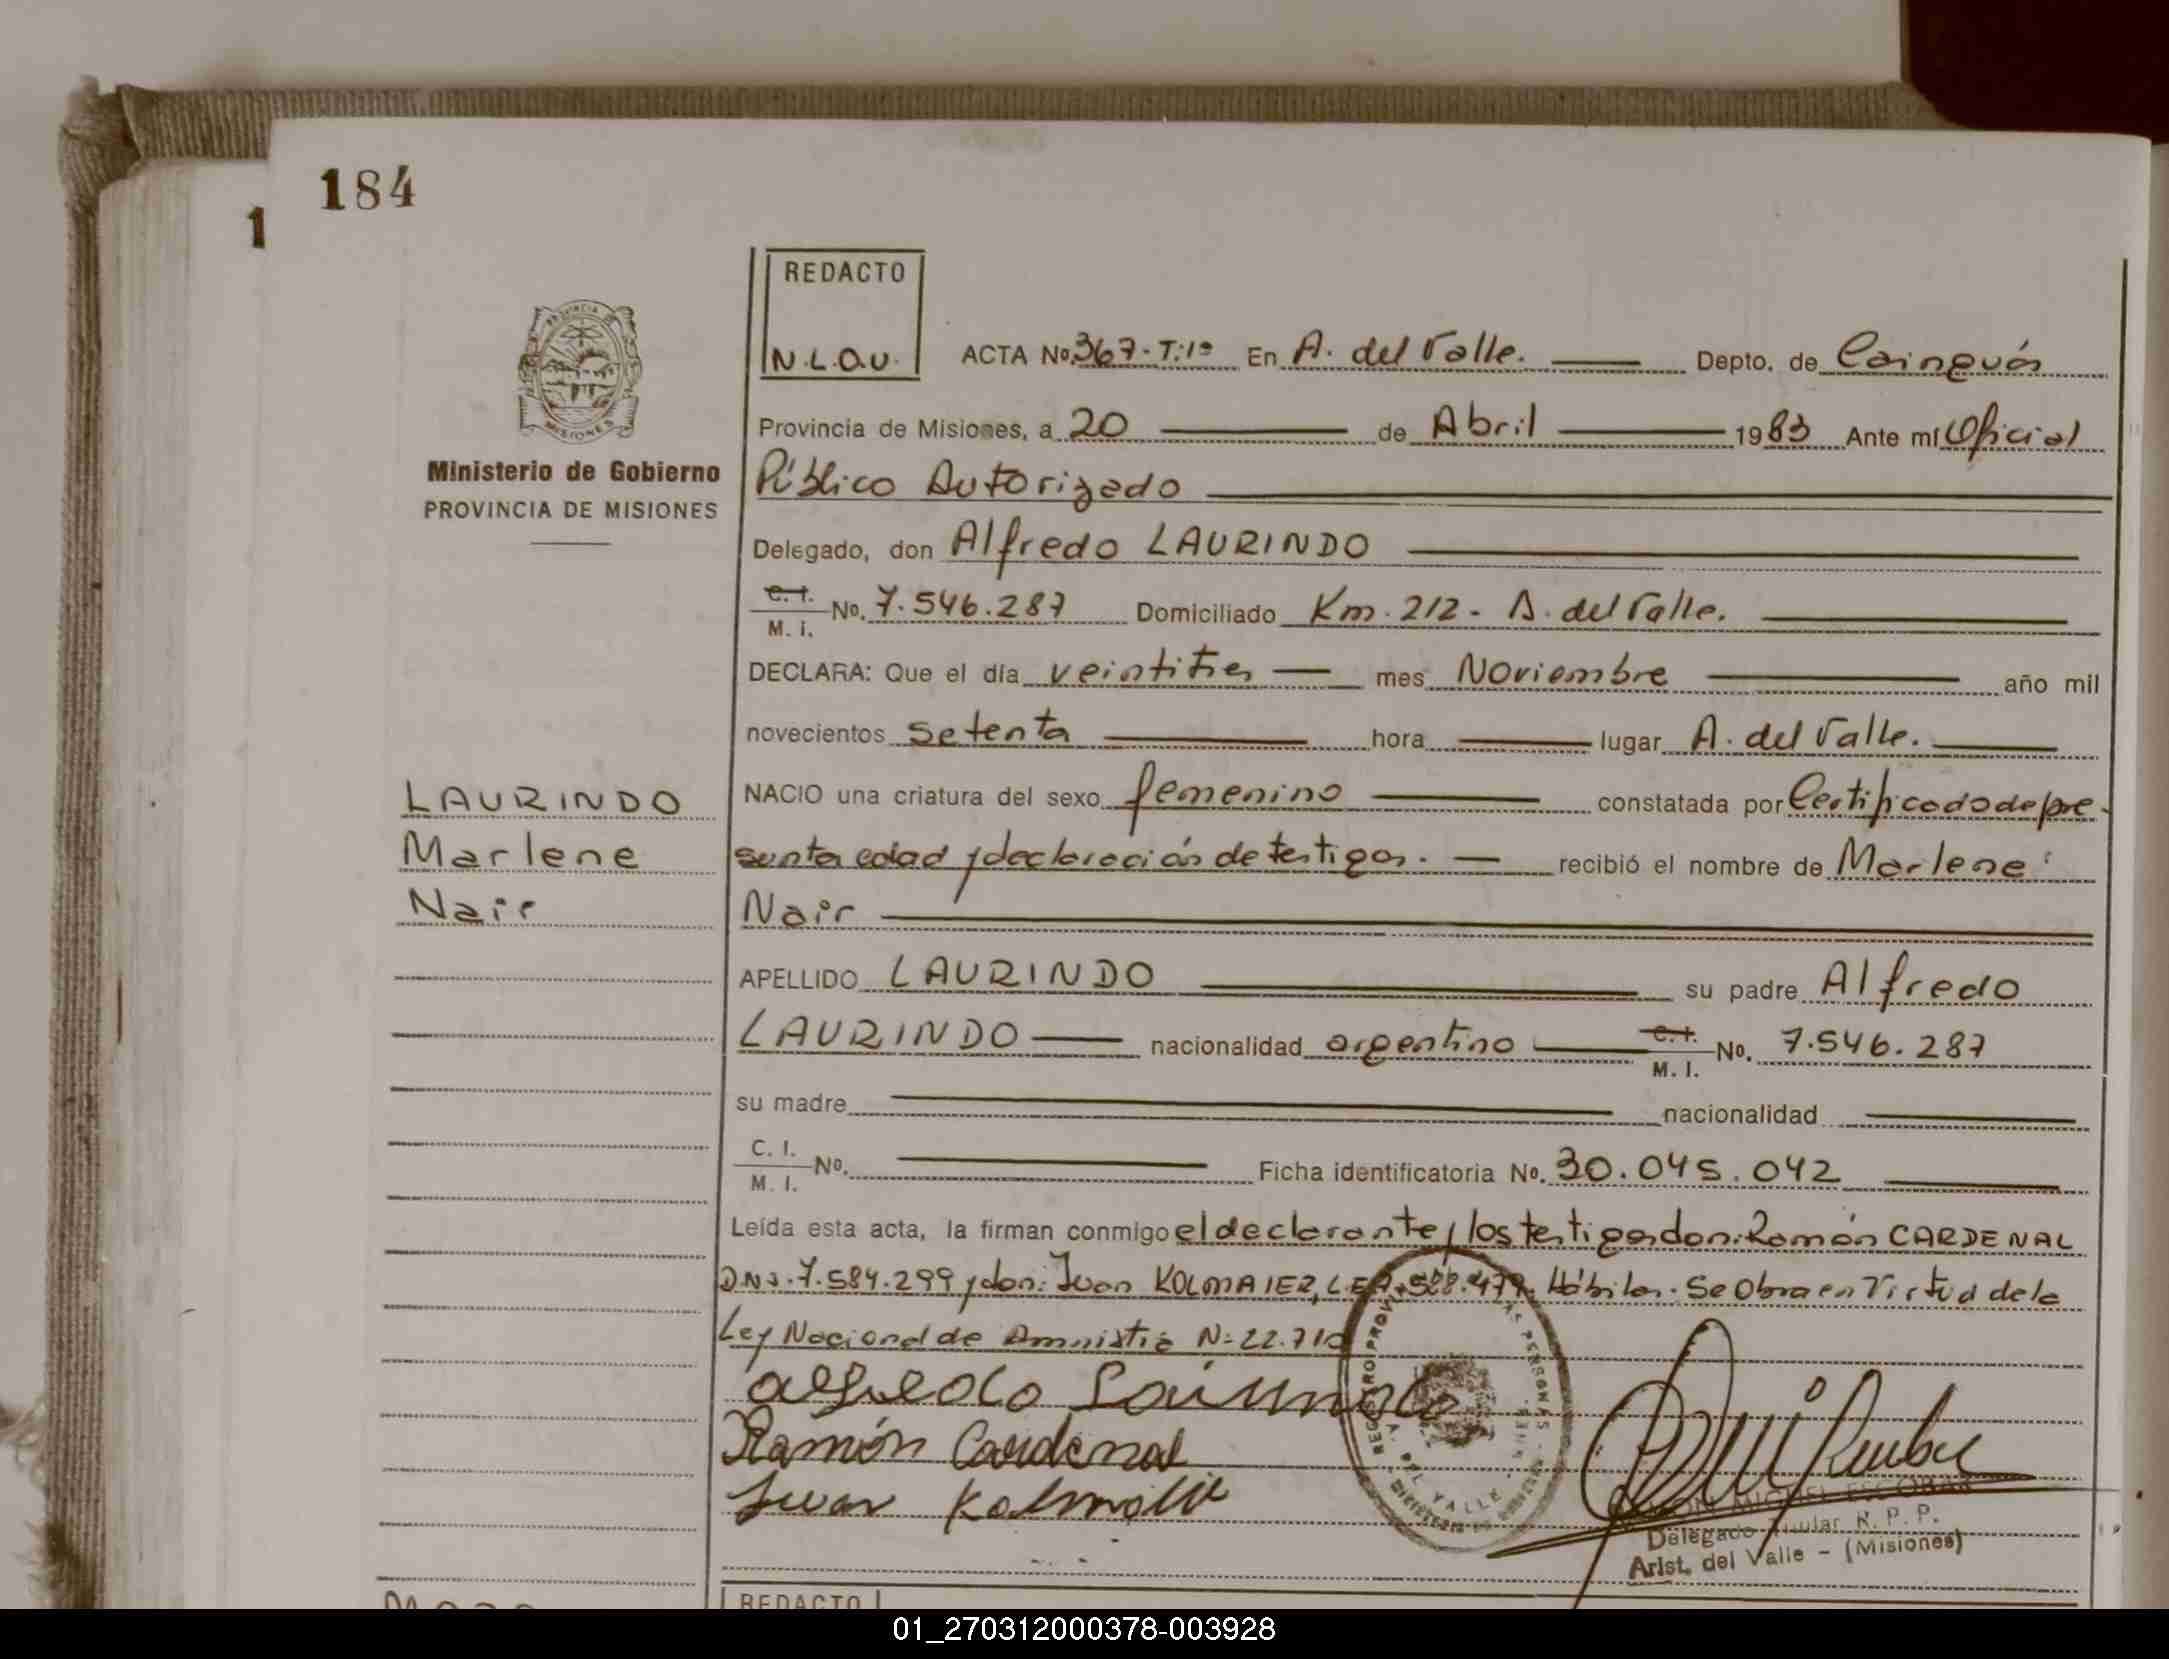 184
1
REDACTO
N.L.O.U.
ACTA No. 367-T:1º En A. del Valle. Depto. de Cainguás
Provincia de Misiones, a 20 de Abril 1983 Ante mí Oficial
Público Autorizado
Ministerio de Gobierno
PROVINCIA DE MISIONES
Delegado, don Alfredo LAURINDO
C. I. M. I. No. 7.546.287 Domiciliado Km. 212- A. del Valle.
DECLARA: Que el día veintitres mes Noviembre año mil
novecientos setenta hora lugar A. del Valle.
NACIO una criatura del sexo femenino constatada por Certificado de pre-
sunta edad y declaración de testigos. recibió el nombre de Marlene
Nair
LAURINDO
Marlene
Nair
APELLIDO LAURINDO su padre Alfredo
LAURINDO nacionalidad argentino C. I. M. I. No. 7.546.287
su madre nacionalidad
C. I. M. I. No. Ficha identificatoria No. 30.045.042
Leída esta acta, la firman conmigo el declarante y los testigos don: Ramón CARDENAL
D.N.I. 7.584.299 y don: Juan KOLMAIER, Hábiles. Se Obra en Virtud de la
Ley Nacional de Amnistía N= 22.710
Ramón Cardenal
Juan
REGISTRO PROV. PERSONAS
A. DEL VALLE
MIGUEL ESCOBAR
Delegado Titular R. P. P.
Arist. del Valle - (Misiones)
REDACTO
01_270312000378-003928